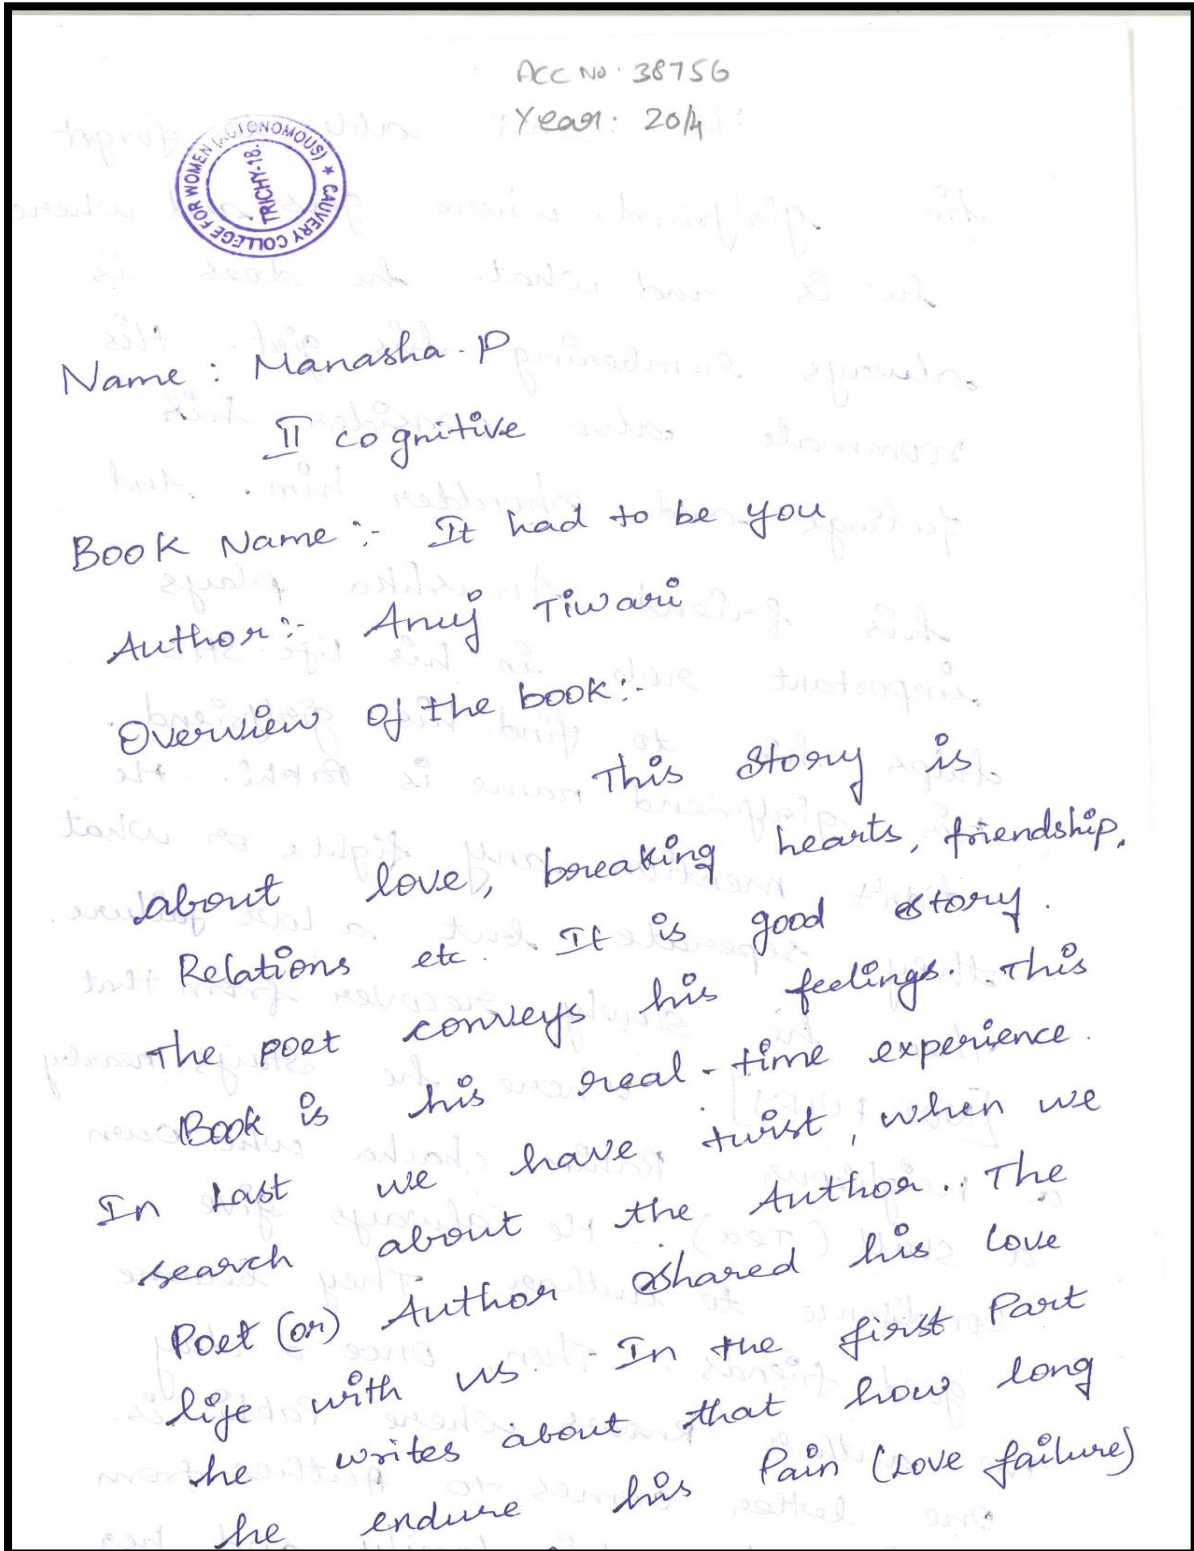 ACC No. 38756
Year: 2014
CAUVERY COLLEGE FOR WOMEN (AUTONOMOUS) ★
TRICHY-18.
Name : Manasha. P
II cognitive
Book Name :- It had to be you
Author :- Anuj Tiwari
Overview of the book :-
This story is
about love, breaking hearts, friendship,
Relations etc. It is good story.
The poet conveys his feelings. This
Book is his real-time experience.
In Last we have twist, when we
search about the Author. The
Poet (or) Author shared his love
life with us. In the first Part
he writes about that how long
he endure his Pain (Love failure)